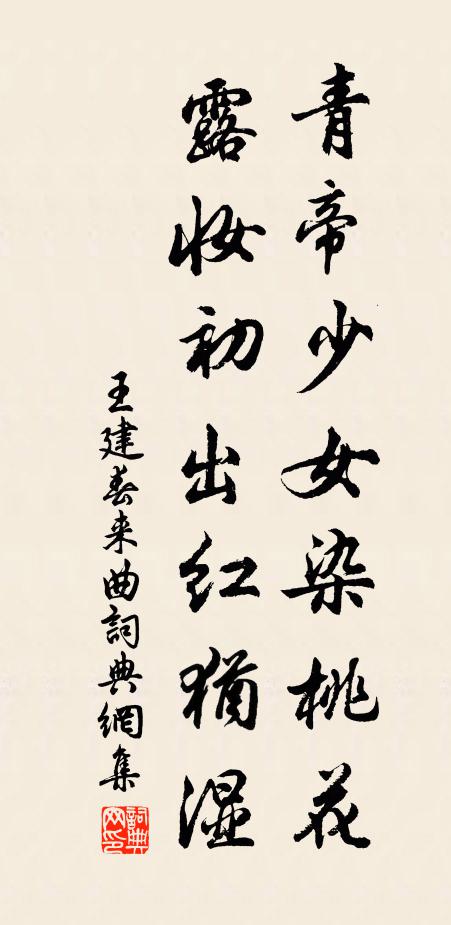 青帝少女染桃花
露妝初出红猶湿
王建春来曲詞典網集
詞典網印